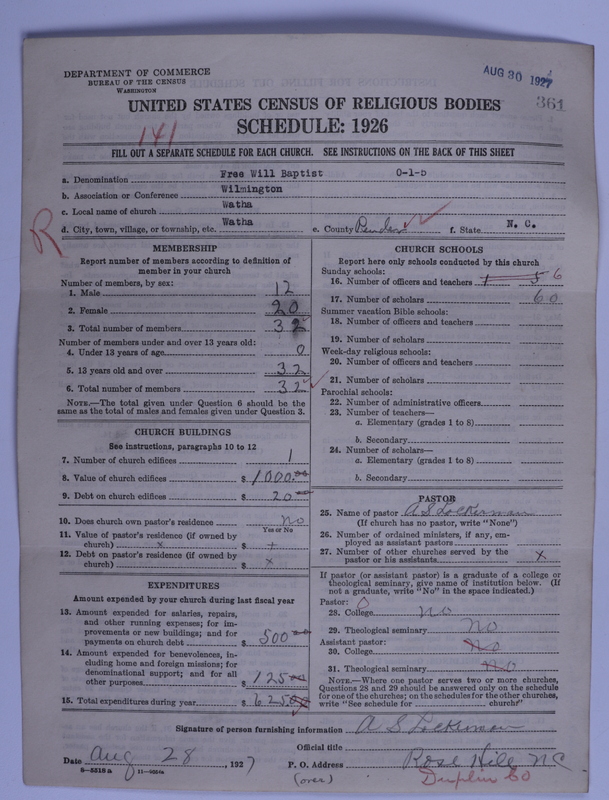 DEPARTMENT OF COMMERCE
BUREAU OF THE CENSUS
WASHINGTON
AUG 30 1927
361
UNITED STATES CENSUS OF RELIGIOUS BODIES
SCHEDULE: 1926
141
FILL OUT A SEPARATE SCHEDULE FOR EACH CHURCH. SEE INSTRUCTIONS ON THE BACK OF THIS SHEET
a. Denomination Free Will Baptist 0-1-5
b. Association or Conference Wilmington
c. Local name of church Watha
d. City, town, village, or township, etc. Watha e. County Pender f. State N. C.
R
MEMBERSHIP
Report number of members according to definition of
member in your church
Number of members, by sex:
1. Male 12
2. Female 20
3. Total number of members 32
Number of members under and over 13 years old:
4. Under 13 years of age 0
5. 13 years old and over 32
6. Total number of members 32
NOTE.—The total given under Question 6 should be the
same as the total of males and females given under Question 3.
CHURCH BUILDINGS
See instructions, paragraphs 10 to 12
7. Number of church edifices 1
8. Value of church edifices $ 1000.00
9. Debt on church edifices $ 20.00
10. Does church own pastor's residence no
Yes or No
11. Value of pastor's residence (if owned by
church) x $ x
12. Debt on pastor's residence (if owned by
church) $ x
EXPENDITURES
Amount expended by your church during last fiscal year
13. Amount expended for salaries, repairs,
and other running expenses; for im-
provements or new buildings; and for
payments on church debt $ 500.00
14. Amount expended for benevolences, in-
cluding home and foreign missions; for
denominational support; and for all
other purposes $ 125.00
15. Total expenditures during year $ 625.00
CHURCH SCHOOLS
Report here only schools conducted by this church
Sunday schools:
16. Number of officers and teachers 1 5 6
17. Number of scholars 60
Summer vacation Bible schools:
18. Number of officers and teachers
19. Number of scholars
Week-day religious schools:
20. Number of officers and teachers
21. Number of scholars
Parochial schools:
22. Number of administrative officers
23. Number of teachers—
a. Elementary (grades 1 to 8)
b. Secondary
24. Number of scholars—
a. Elementary (grades 1 to 8)
b. Secondary
PASTOR
25. Name of pastor A S Lockerman
(If church has no pastor, write "None")
26. Number of ordained ministers, if any, em-
ployed as assistant pastors
27. Number of other churches served by the
pastor or his assistants x
If pastor (or assistant pastor) is a graduate of a college or
theological seminary, give name of institution below. (If
not a graduate, write "No" in the space indicated.)
Pastor:
28. College no
29. Theological seminary no
Assistant pastor:
30. College no
31. Theological seminary no
NOTE.—Where one pastor serves two or more churches,
Questions 28 and 29 should be answered only on the schedule
for one of the churches; on the schedules for the other churches,
write "See schedule for church"
Signature of person furnishing information A S Lockerman
Official title
Date Aug 28, 1927 P. O. Address Rose Hill NC
8—5318a 11—9024a
(over) Duplin Co